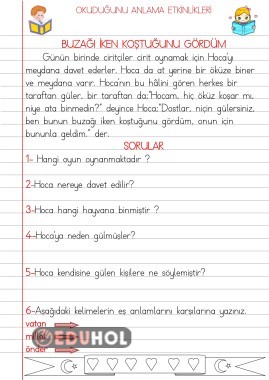 OKUDUĞUNU ANLAMA ETKİNLİKLERİ
BUZAĞI İKEN KOŞTUĞUNU GÖRDÜM
Günün birinde ciritçiler cirit oynamak için Hoca'yı
meydana davet ederler. Hoca da at yerine bir öküze biner
ve meydana varır. Hoca'nın bu hâlini gören herkes bir
taraftan güler, bir taraftan da;"Hocam, hiç öküz koşar mı,
niye ata binmedin?" deyince Hoca;"Dostlar, niçin gülersiniz,
ben bunun buzağı iken koştuğunu gördüm, onun için
bununla geldim." der.
SORULAR
1- Hangi oyun oynanmaktadır ?
2-Hoca nereye davet edilir?
3-Hoca hangi hayvana binmiştir ?
4-Hoca'ya neden gülmüşler?
5-Hoca kendisine gülen kişilere ne söylemiştir?
6-Aşağıdaki kelimelerin eş anlamlarını karşılarına yazınız.
vatan
millet
önder
EDUHOL